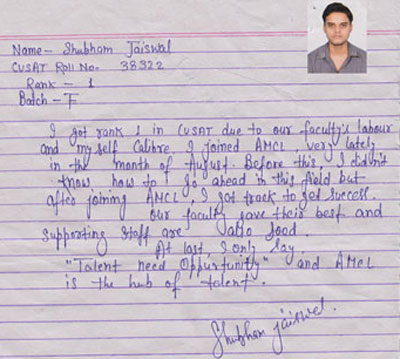 Name - Shubham Jaiswal
CUSAT Roll No. 38322
Rank - 1
Batch - F
I got rank 1 in CUSAT due to our faculty's labour
and my self Calibre. I joined AMCL, very lately
in the month of August. Before this, I didn't
know, how to go ahead in this field but
after joining AMCL, I got track to get success.
Our faculty gave their best and
supporting staff are also good.
At last, I only say,
"Talent need Oppurtunity" and AMCL
is the hub of talent.
Shubham jaiswal.